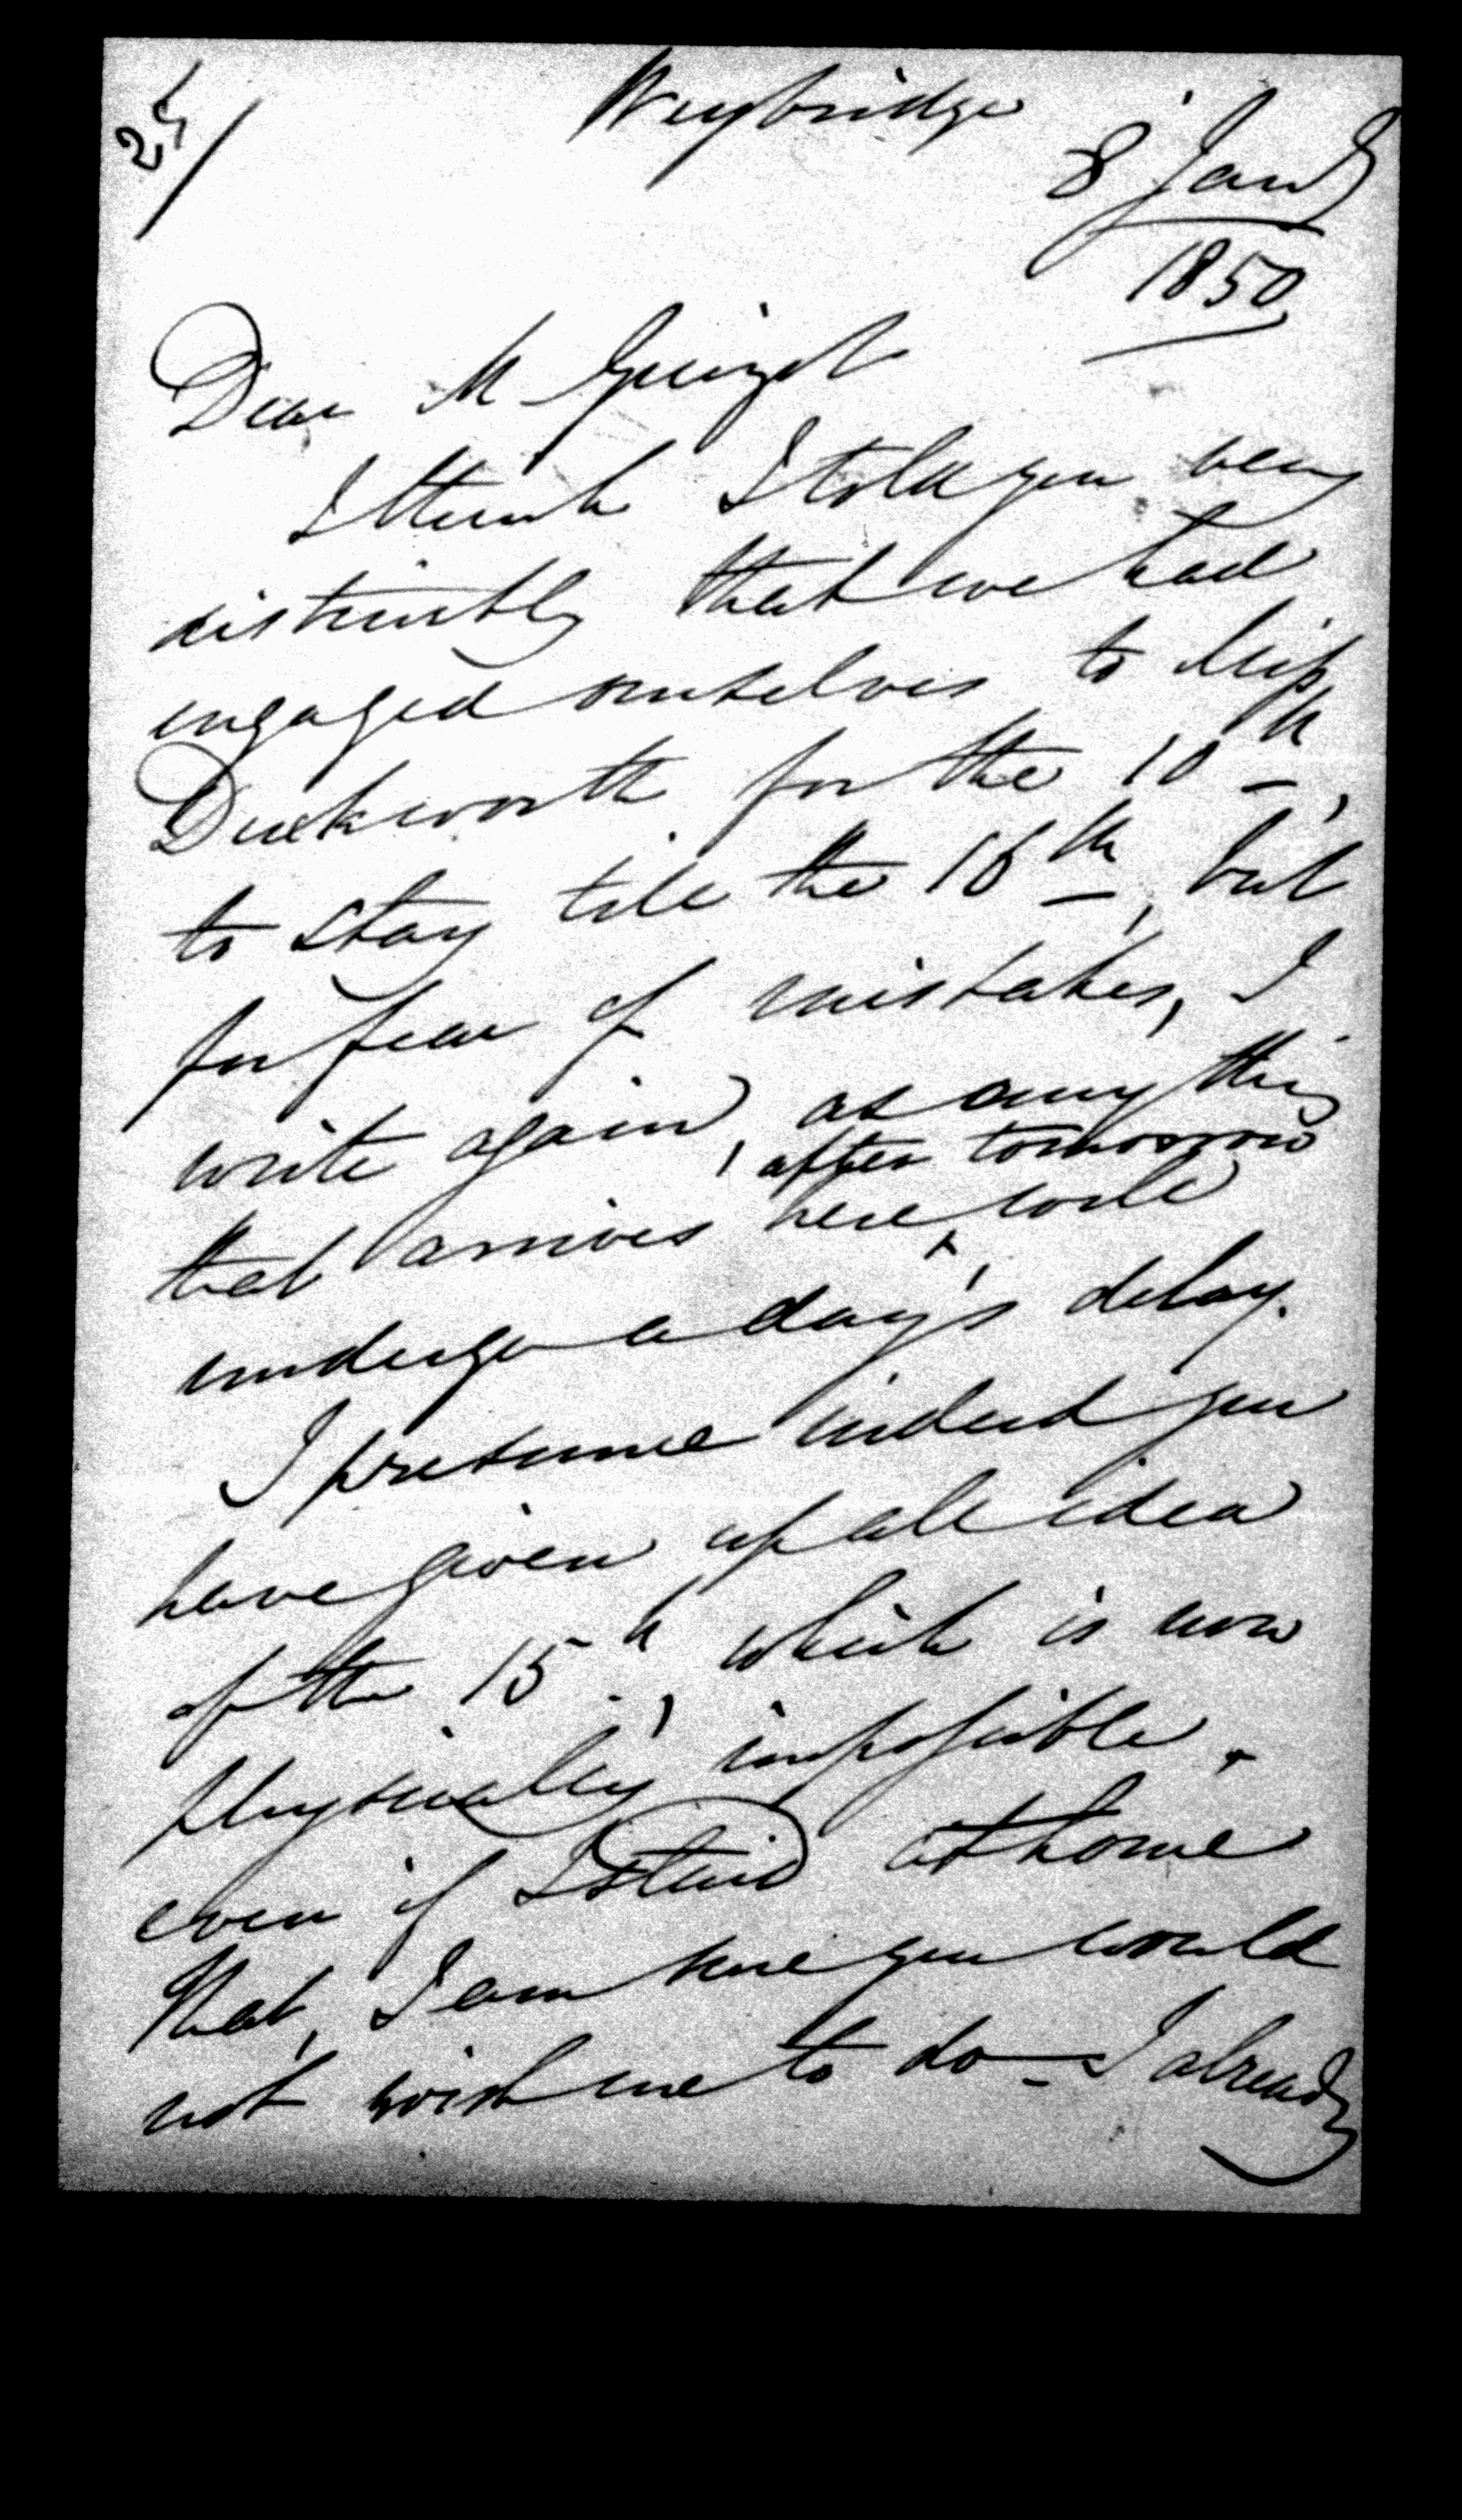 Weybridge
8 Jany
1850
Dear M Guizot
I think I told you very
distinctly that we had
engaged ourselves to Miss
Duckworth for the 10th,
to stay till the 16th, but
for fear of mistakes, I
write again, as any thing
after tomorrow
that arrives here will
undergo a day's delay.
I presume indeed you
have given up all idea
of the 15th, which is now
physically impossible.
even if I staid at home
that, I am sure you would
not wish me to do - I already